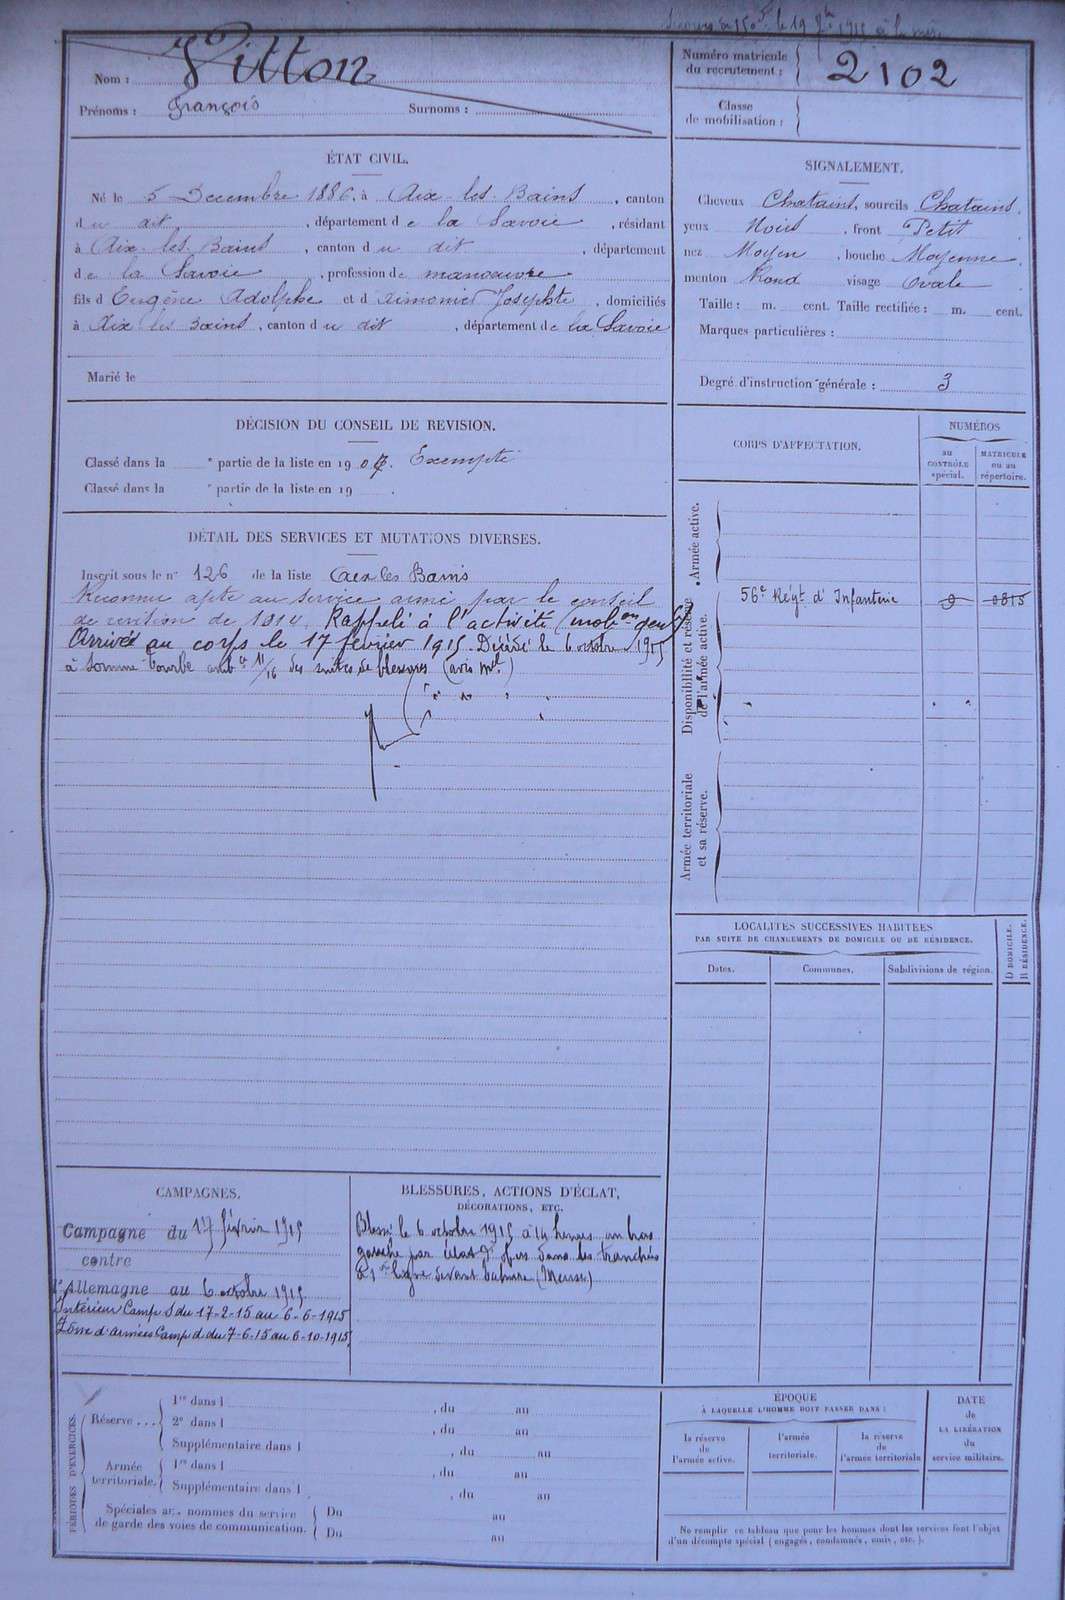 Secours de 150 f. le 19 1915 à la mère
Nom : Vitton
Prénoms : François Surnoms :
Numéro matricule
du recrutement : 2102
Classe
de mobilisation :
ÉTAT CIVIL.
Né le 5 Decembre 1886, à Aix-les-Bains, canton
du dit, département de la Savoie, résidant
à Aix-les-Bains, canton du dit, département
de la Savoie, profession de manoeuvre
fils d'Eugène Adolphe et d Josephte, domiciliés
à Aix les Bains, canton du dit, département de la Savoie
Marié le
SIGNALEMENT.
Cheveux Chatains, sourcils Chatains,
yeux Noirs, front Petit
nez Moyen, bouche Moyenne,
menton Rond visage Ovale
Taille : m. cent. Taille rectifiée : m. cent.
Marques particulières :
Degré d'instruction générale : 3
DÉCISION DU CONSEIL DE REVISION.
Classé dans la e partie de la liste en 1907. Exempté
Classé dans la e partie de la liste en 19 .
DÉTAIL DES SERVICES ET MUTATIONS DIVERSES.
Inscrit sous le n° 126 de la liste Aix les Bains
Reconnu apte au service armé par le conseil
de revision de 1914. Rappelé à l'activité (mob.on génle)
Arrivé au corps le 17 février 1915. Décédé le 6 octobre 1915
à Somme Tourbe amb.ce 11/16 des suites de blessures (avis mel)
CORPS D'AFFECTATION.
NUMÉROS
au
CONTRÔLE
spécial.
MATRICULE
ou au
répertoire.
Armée active.
Disponibilité et réserve
de l'armée active.
56e Régt d'Infanterie 0 0815
Armée territoriale
et sa réserve.
LOCALITÉS SUCCESSIVES HABITÉES
PAR SUITE DE CHANGEMENTS DE DOMICILE OU DE RÉSIDENCE.
Dates. Communes. Subdivisions de région.
D DOMICILE.
R RÉSIDENCE.
CAMPAGNES.
Campagne du 17 février 1915
contre
l'Allemagne au 6 octobre 1915
Intérieur Camp S du 17-2-15 au 6-6-1915
Zône d'armées Camp d du 7-6-15 au 6-10-1915.
BLESSURES, ACTIONS D'ÉCLAT,
DÉCORATIONS, ETC.
Blessé le 6 octobre 1915 à 14 heures au bras
gauche par éclat d'obus dans les tranchées
de 1re ligne devant Tahure (Marne)
PÉRIODES D'EXERCICES.
Réserve ...
1re dans l , du au
2e dans l , du au
Supplémentaire dans l , du au
Armée
territoriale.
1re dans l , du au
Supplémentaire dans l , du au
Spéciales aux hommes du service
de garde des voies de communication.
Du au
Du au
ÉPOQUE
À LAQUELLE L'HOMME DOIT PASSER DANS :
la réserve
de
l'armée active.
l'armée
territoriale.
la réserve
de
l'armée territoriale
DATE
de
LA LIBÉRATION
du
service militaire.
Ne remplir ce tableau que pour les hommes dont les services font l'objet
d'un décompte spécial (engagés, condamnés, omis, etc.).